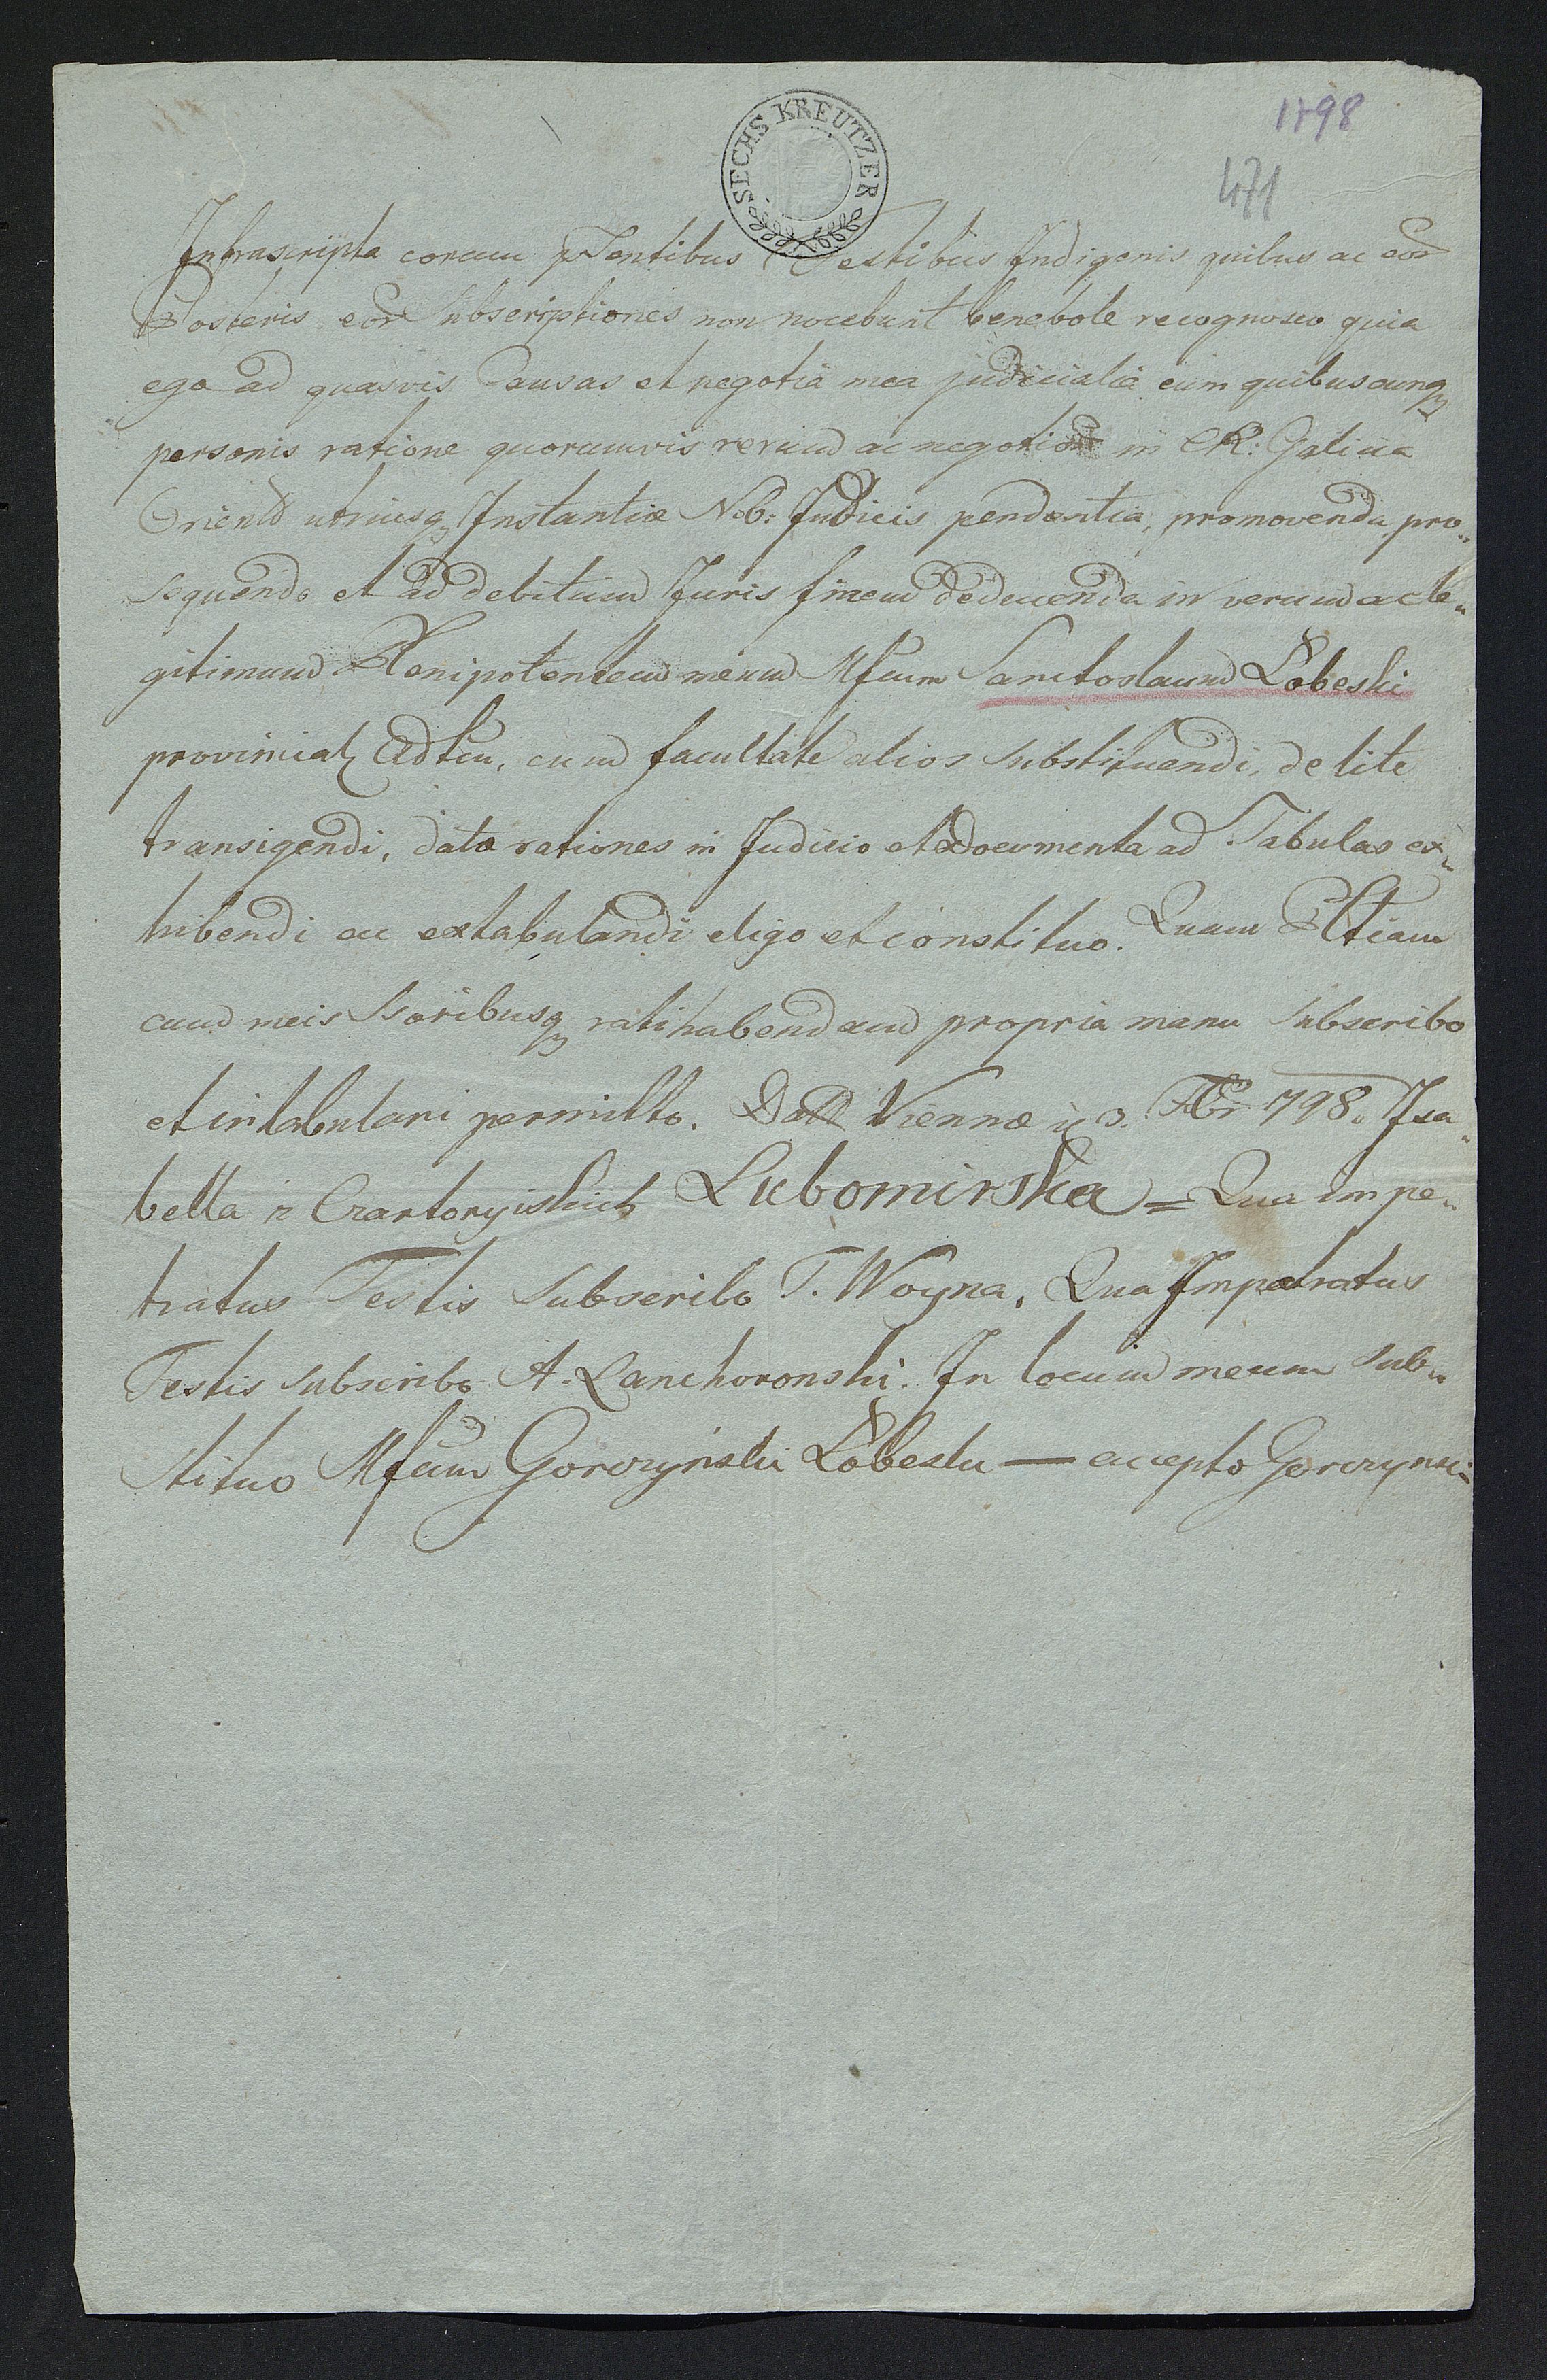 1798
471
SECHS KREUTZER
Infrascripta coram pssentibus Testibus Indigenis quibus ac eor
Posteris eor Subscriptiones non nocebunt benevole recognosco quia
ego ad quasvis Causas et negotia mea judicialia cum quibuscunq
personis ratione quorumvis rerum ac negotior in R: Galicia
Orient utriusq Instantiæ Nob: Judicis pendentia, promovenda, pro„
sequenda et ad debitum Juris finem deducenda in verum ac le„
gitimum Plenipotentem meum Mfcum Sanctoslaum Łobeski
provincial Adtum, cum facultate alios substituendi, de lite
transigendi, data rationes in Judicio et Documenta ad Tabulas ex„
hibendi ac extabulandi eligo et constituo. Quam Pltiam
cum meis Ssoribusq ratihabendam propria manu subscribo
et intabulari permitto. Datt Viennæ 3. 798. Isa„
bella z Czartoryiskich Lubomirska = Qua impe„
tratus Testis Subscribo T. Woyna. Qua Impetratus
Testis subscribo A. Lanchoronski. In locum meum sub„
stituo Mfcum Gorczyński Łobeski — accepto Gorczynski